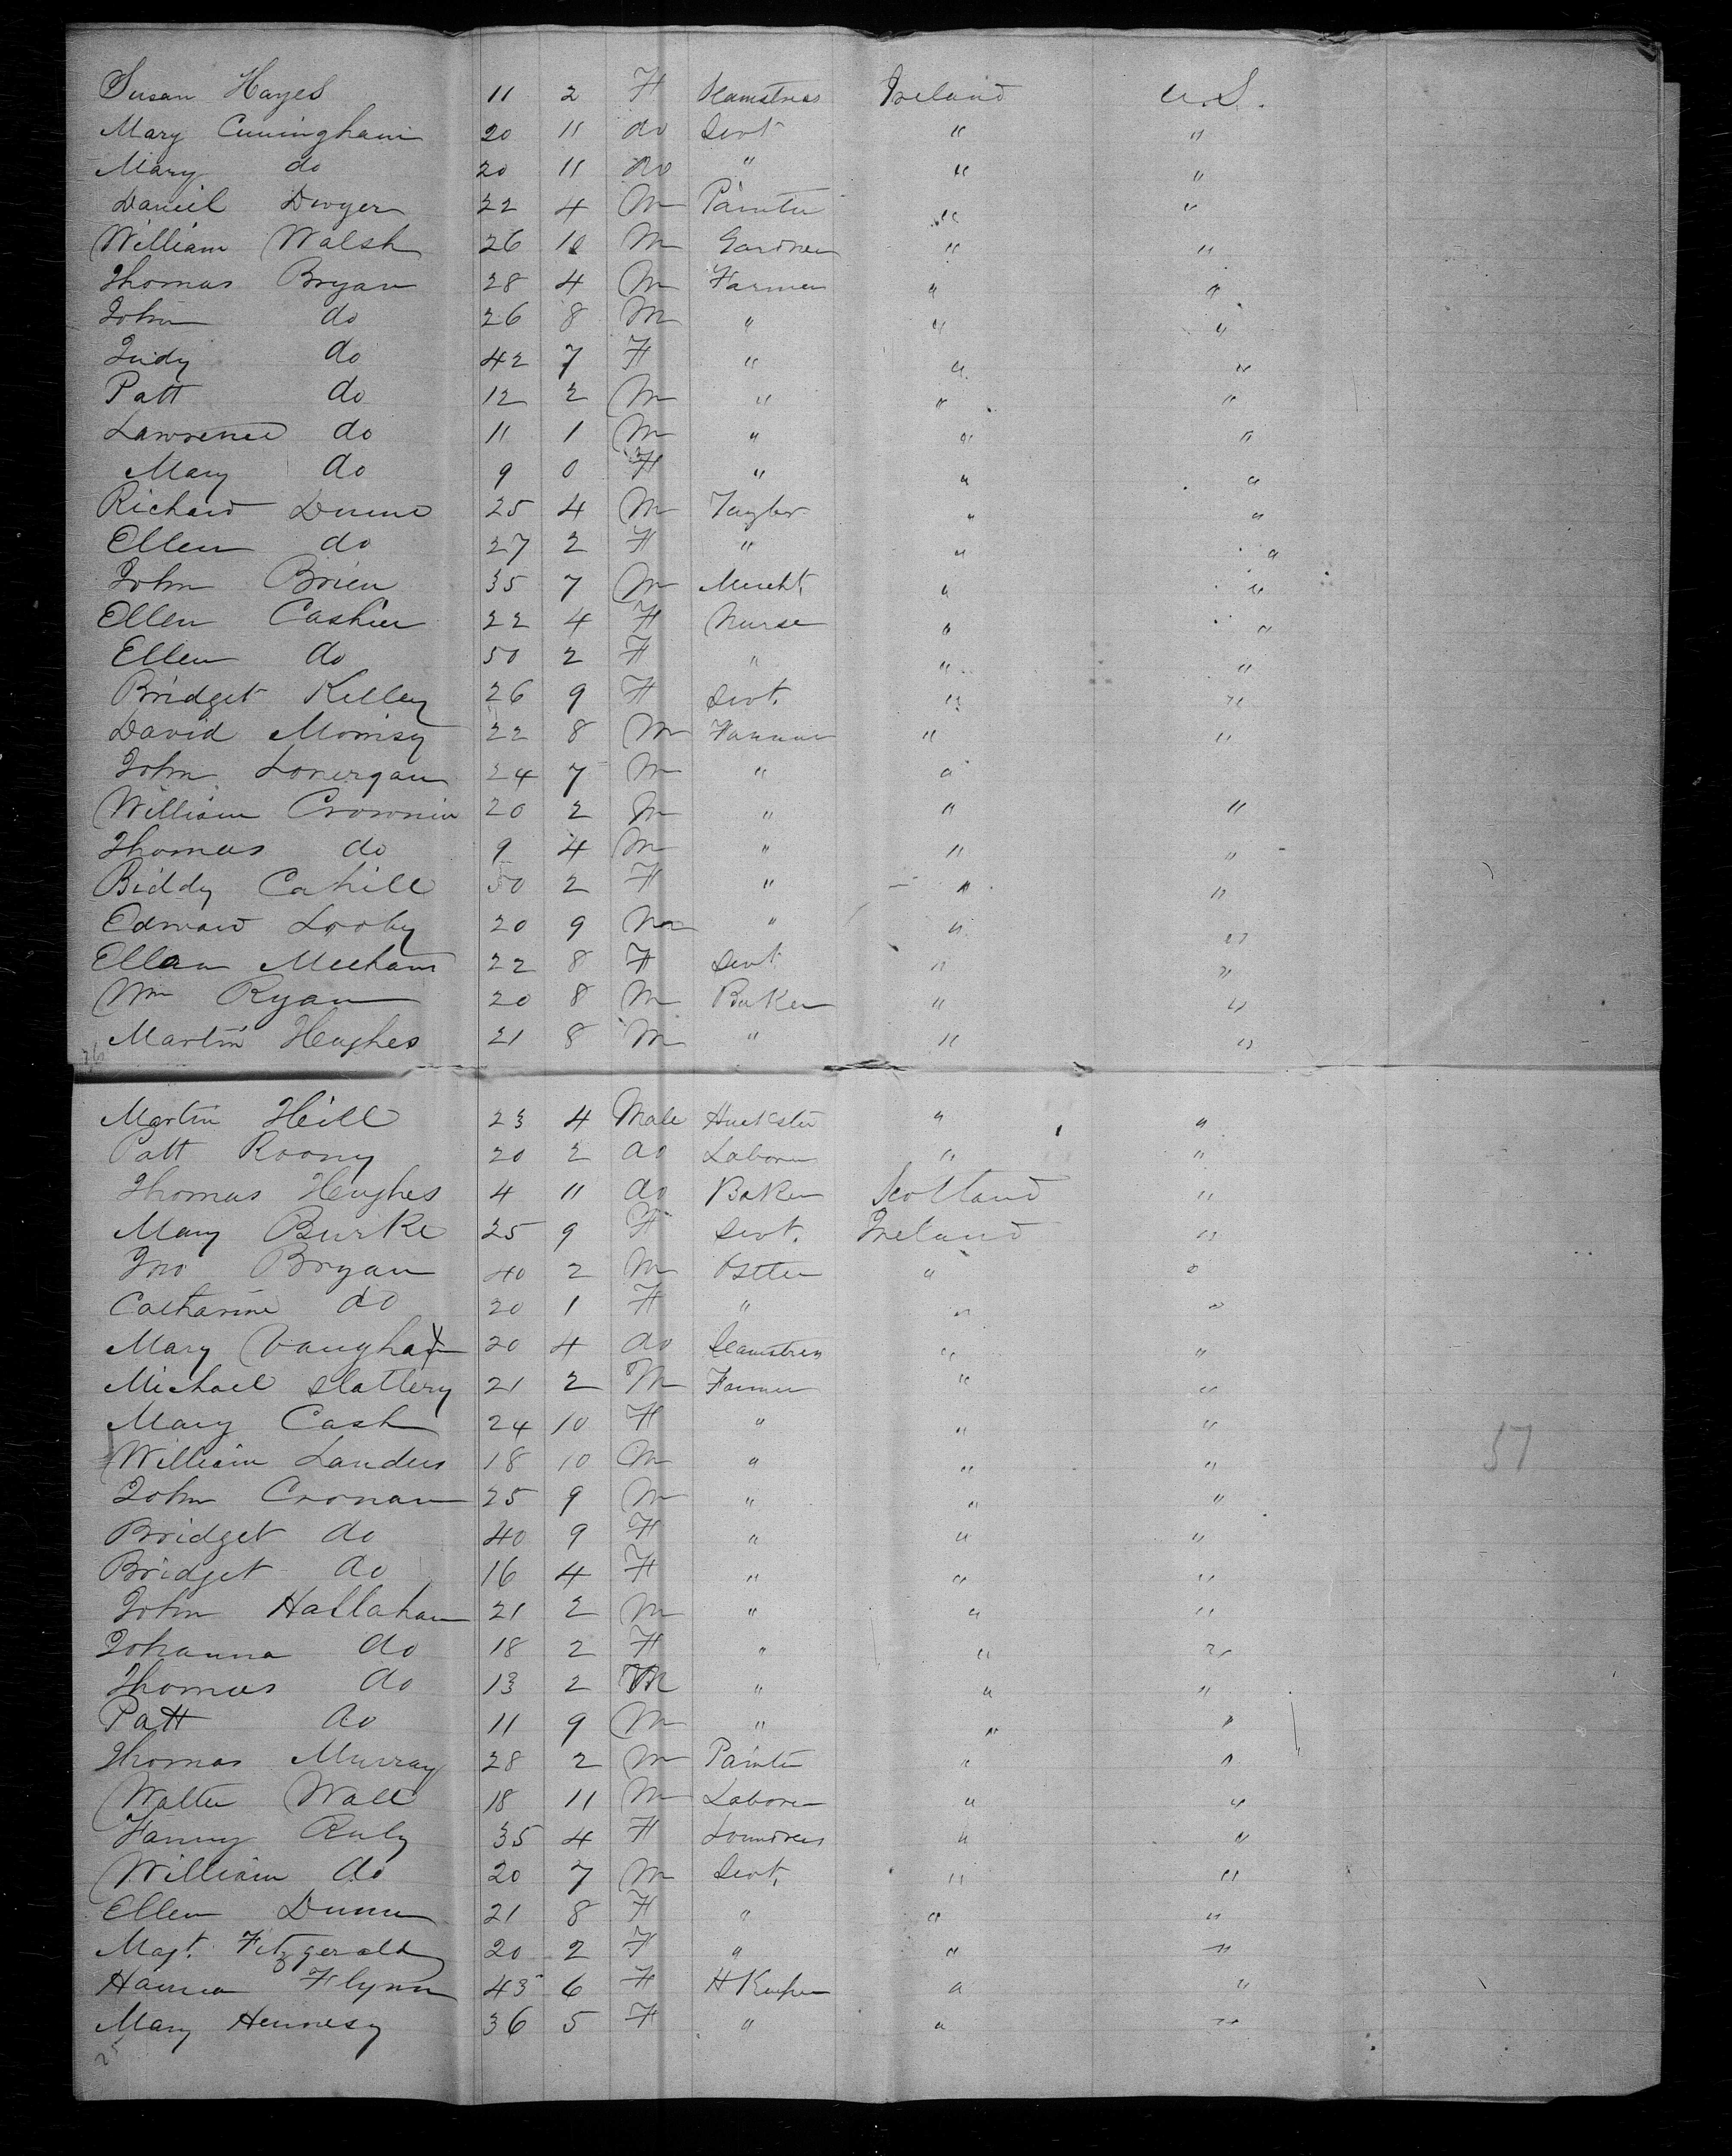 Susan Hayes 11 2 F Seamstress Ireland U.S.
Mary Cuningham 20 11 do Servt " "
Mary do 20 11 do " " "
Daniel Dwyer 22 4 M Painter " "
William Walsh 26 10 M Gardner " "
Thomas Bryan 28 4 M Farmer " "
John do 26 8 M " " "
Judy do 42 7 F " " "
Patt do 12 2 M " " "
Lawrence do 11 1 M " " "
Mary do 9 0 F " " "
Richard Dunne 25 4 M Taylor " "
Ellen do 27 2 F " " "
John Brien 35 7 M Mercht, " "
Ellen Cashin 22 4 F Nurse " "
Ellen do 50 2 F " " "
Bridget Kelley 26 9 F Servt. " "
David Morrisy 22 8 M Farmer " "
John Lonergan 24 7 M " "
William Crownin 20 2 M " " "
Thomas do 9 4 M " " "
Biddy Cahill 50 2 F " " "
Edward Looby 20 9 M " " "
Ellen Meehan 22 8 F Servt " "
Wm Ryan 20 8 M Baker " "
Martin Hughes 21 8 M " " "
26
Martin Heill 23 4 Male Huckster " "
Patt Roony 20 2 do Laborer " "
Thomas Hughes 4 11 do Baker Scotland "
Mary Burke 25 9 F Servt. Ireland "
Jno Bryan 40 2 M Ostler " "
Catharine do 20 1 F " " "
Mary Vaughan 20 4 do Seamstress " "
Michael Slattery 21 2 M Farmer " "
Mary Cash 24 10 F " " "
William Landers 18 10 M " " " 57
John Cronan 25 9 M " " "
Bridget do 40 9 F " " "
Bridget do 16 4 F " " "
John Hallahan 21 2 M " " "
Johanna do 18 2 F " " "
Thomas do 13 2 M " " "
Patt do 11 9 M " " "
Thomas Murray 28 2 M Painter " "
Walter Wall 18 11 M Laborer " "
Fanny 35 4 F Loundress " "
William do 20 7 M Servt, " "
Ellen Dunn 21 8 F " " "
Magt. Fitzgerald 20 2 F " " "
Hanna Flynn 43 6 F H Keeper " "
Mary Hennesy 36 5 F " " "
25